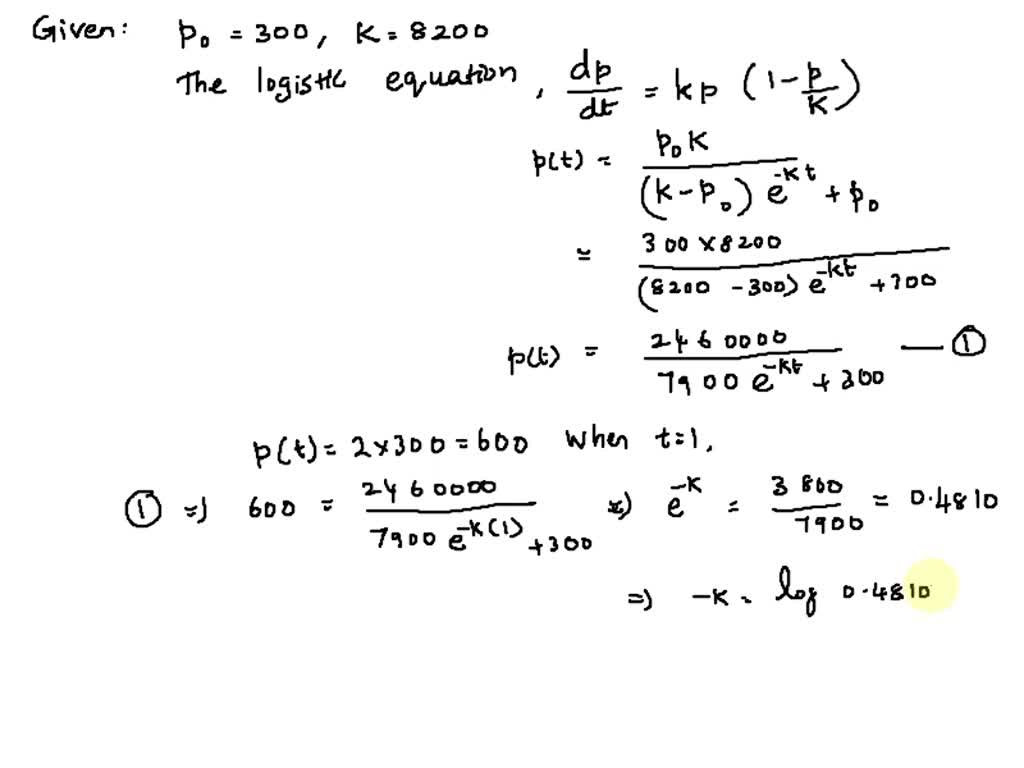 Given: P₀ = 300, K = 8200
The logistic equation, dp/dt = kp (1 - p/K)
p(t) = P₀K / (K - P₀) e^-kt + P₀
= 300 × 8200 / (8200 - 300) e^-kt + 300
p(t) = 2460000 / 7900 e^-kt + 300 — ①
p(t) = 2×300 = 600 when t=1,
① => 600 = 2460000 / 7900 e^-k(1) + 300 => e^-k = 3800 / 7900 = 0.4810
=> -k = log 0.4810